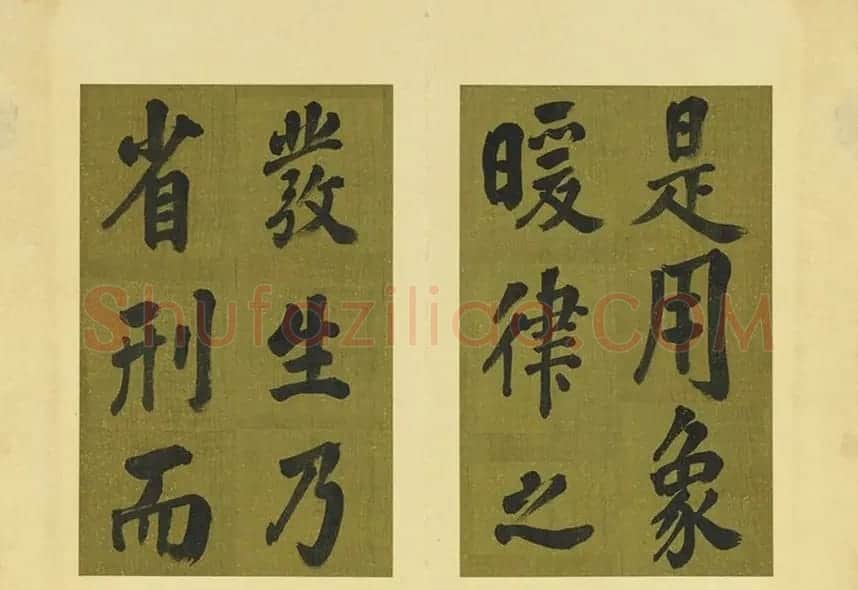 是用象
暖律之
發生乃
省刑而
Shufaziliao.COM